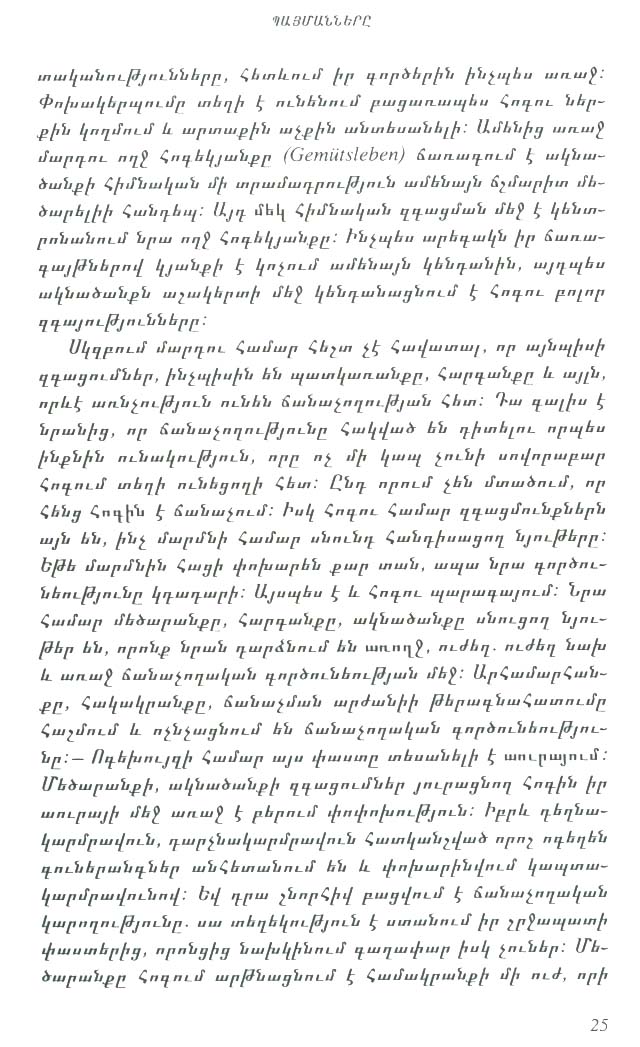 ՊԱՅՄԱՆՆԵՐԸ
տականությունները, հետևում իր գործերին ինչպես առաջ:
Փոխակերպումը տեղի է ունենում բացառապես հոգու ներ-
քին կողմում և արտաքին աչքին անտեսանելի: Ամենից առաջ
մարդու ողջ հոգեկյանքը (Gemütsleben) ճառագում է ակնա-
ծանքի հիմնական մի տրամադրություն ամենայն ճշմարիտ մե-
ծարելիի հանդեպ: Այդ մեկ հիմնական զգացման մեջ է կենտ-
րոնանում նրա ողջ հոգեկյանքը: Ինչպես արեգակն իր ճառա-
գայթներով կյանքի է կոչում ամենայն կենդանին, այդպես
ակնածանքն աշակերտի մեջ կենդանացնում է հոգու բոլոր
զգայությունները:
Սկզբում մարդու համար հեշտ չէ հավատալ, որ այնպիսի
զգացումներ, ինչպիսին են պատկառանքը, հարգանքը և այլն,
որևէ առնչություն ունեն ճանաչողության հետ: Դա գալիս է
նրանից, որ ճանաչողությունը հակված են դիտելու որպես
ինքնին ունակություն, որը ոչ մի կապ չունի սովորաբար
հոգում տեղի ունեցողի հետ: Ընդ որում չեն մտածում, որ
հենց հոգին է ճանաչում: Իսկ հոգու համար զգացմունքներն
այն են, ինչ մարմնի համար սնունդ հանդիսացող նյութերը:
Եթե մարմնին հացի փոխարեն քար տան, ապա նրա գործու-
նեությունը կդադարի: Այսպես է և հոգու պարագայում: Նրա
համար մեծարանքը, հարգանքը, ակնածանքը սնուցող նյու-
թեր են, որոնք նրան դարձնում են առողջ, ուժեղ. ուժեղ նախ
և առաջ ճանաչողական գործունեության մեջ: Արհամարհան-
քը, հակակրանքը, ճանաչման արժանիի թերագնահատումը
հաշմում և ոչնչացնում են ճանաչողական գործունեությու-
նը:— Ոգեխույզի համար այս փաստը տեսանելի է աուրայում:
Մեծարանքի, ակնածանքի զգացումներ յուրացնող հոգին իր
աուրայի մեջ առաջ է բերում փոփոխություն: Իբրև դեղնա-
կարմրավուն, դարչնակարմրավուն հատկանշված որոշ ոգեղեն
գուներանգներ անհետանում են և փոխարինվում կապտա-
կարմրավունով: Եվ դրա շնորհիվ բացվում է ճանաչողական
կարողությունը. սա տեղեկություն է ստանում իր շրջապատի
փաստերից, որոնցից նախկինում գաղափար իսկ չուներ: Մե-
ծարանքը հոգում արթնացնում է համակրանքի մի ուժ, որի
25